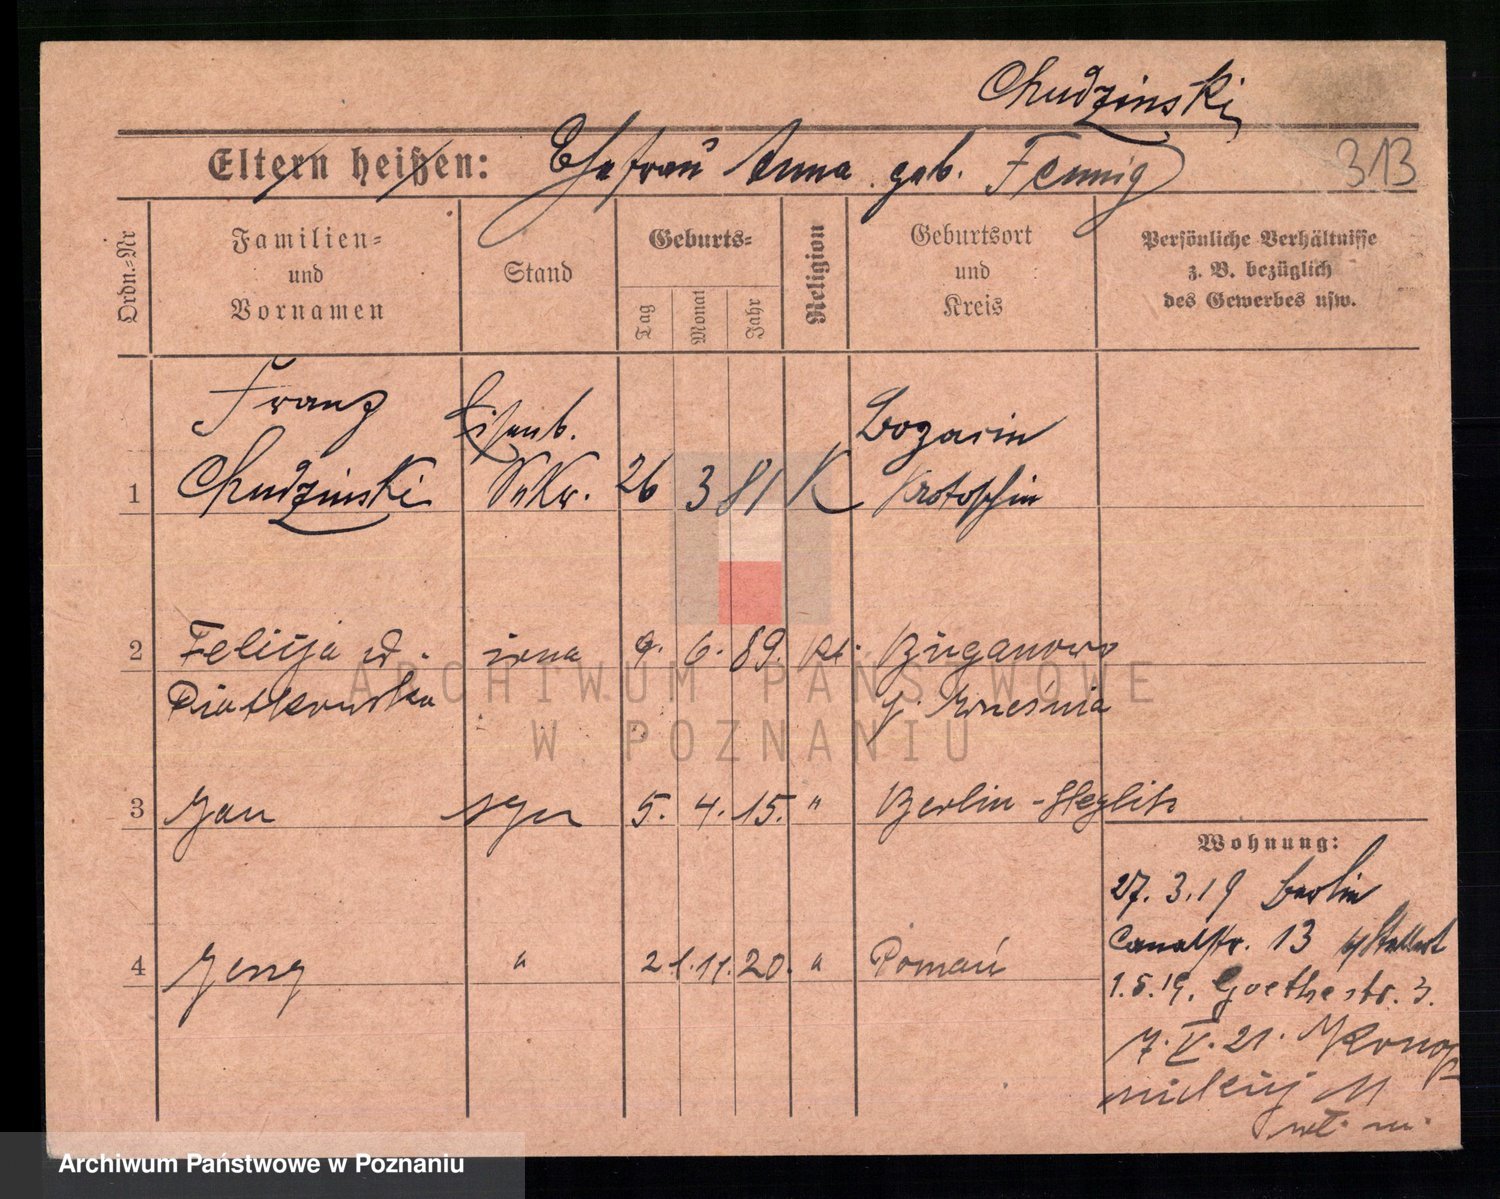 Chudzinski
Eltern heißen: Ehefrau Anna geb. Fennig
313
Ordn.-Nr
Familien-
und
Vornamen
Stand
Geburts-
Tag
Monat
Jahr
Religion
Geburtsort
und
Kreis
Persönliche Verhältnisse
z. B. bezüglich
des Gewerbes usw.
1
Franz
Chudzinski
Eisenb.
26 3 81 K
Bozacin
Krotoschin
2
Felicja
Piatkowska
żona
9. 6. 89. kt.
p. Września
3
Jan
syn
5. 4. 15. "
Berlin-Steglitz
4
Jerzy
"
21. 11. 20. "
Poznań
Wohnung:
27. 3. 19 Berlin
Canalstr. 13
1.5.19. Goethestr. 3.
7. V. 21.
wł. m.
ARCHIWUM PAŃSTWOWE
W POZNANIU
Archiwum Państwowe w Poznaniu